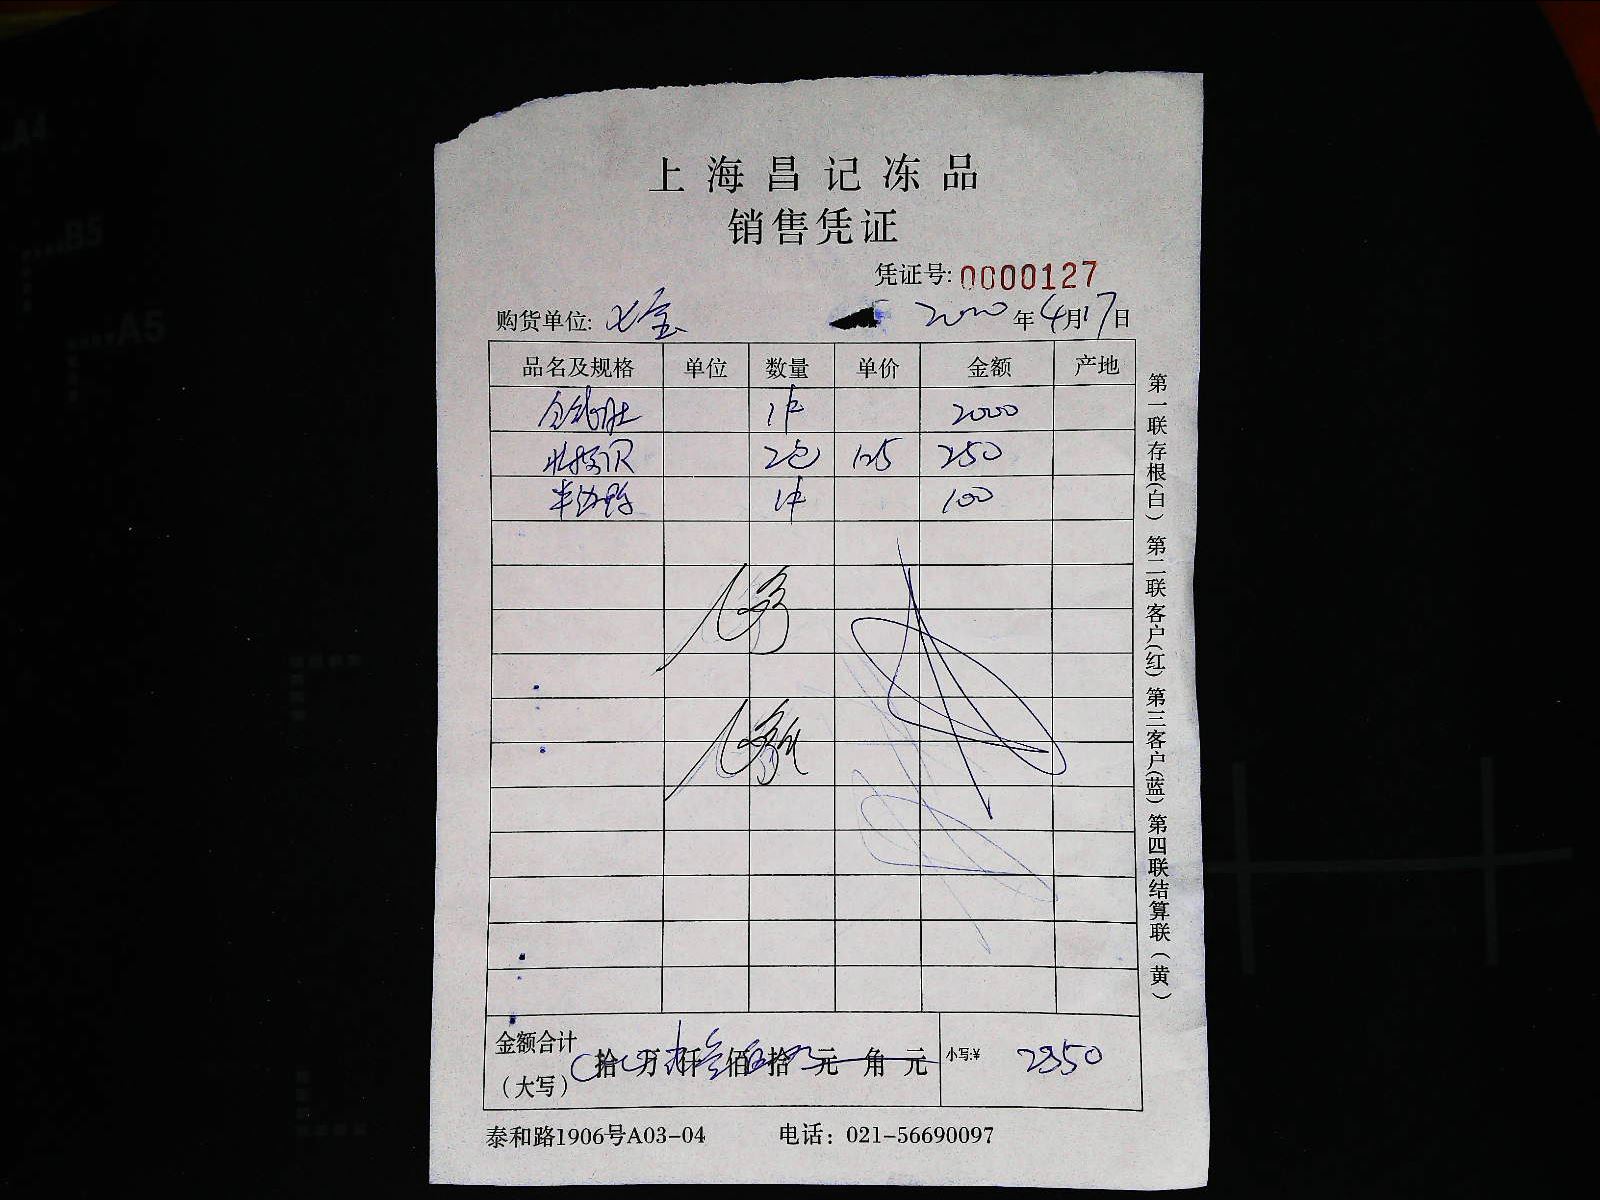 上海昌记冻品
销售凭证
凭证号: 0000127
购货单位: 七宝 2020年4月17日
品名及规格 单位 数量 单价 金额 产地
1件 2000
2包 125 250
半边鸭 1件 100
金额合计(大写) 拾万仟佰拾元角元 小写:¥ 2350
泰和路1906号A03-04 电话: 021-56690097
第一联存根(白) 第二联客户(红) 第三客户(蓝) 第四联结算联(黄)
A4
B5
A5